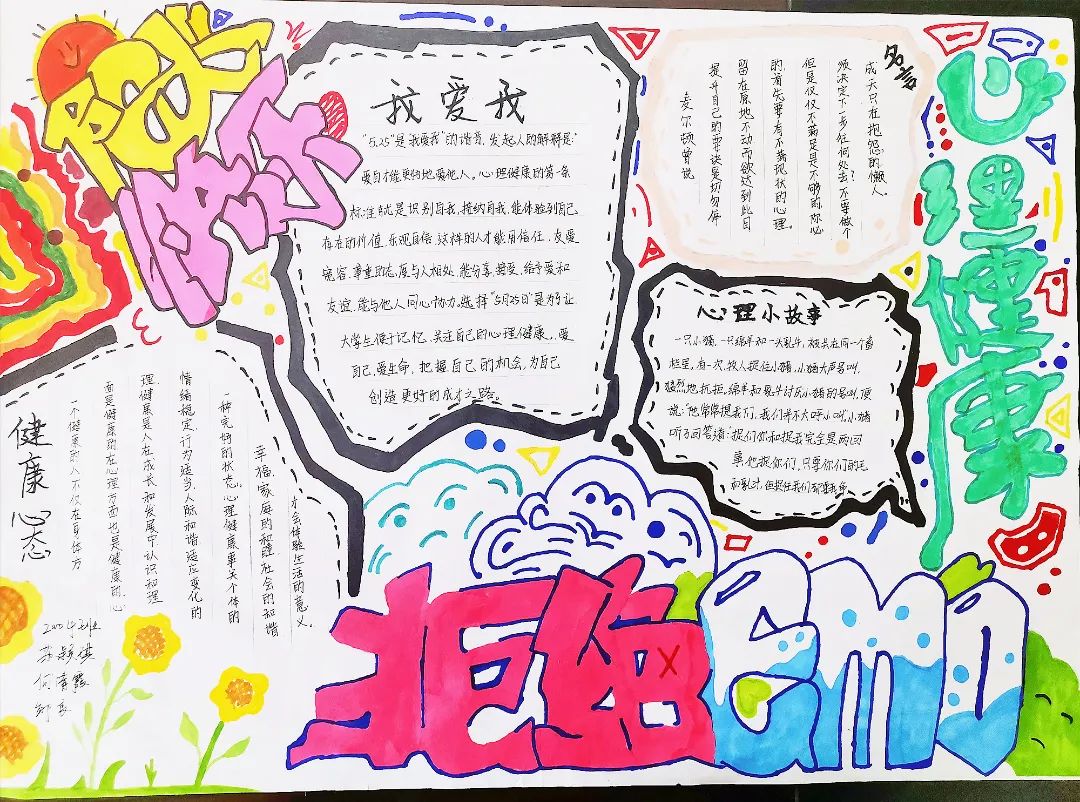 阳光
心理健康
拒绝
emo
我爱我
"5.25"是"我爱我"的谐音，发起人的解释是:
爱自才能更好地爱他人。心理健康的第一条
标准就是识别自我，接纳自我，能体验到自己
存在的价值，乐观自信，这样的人才能用信任、友爱、
宽容、尊重的态度与人相处，能分享、接受、给予爱和
友谊，能与他人同心协力。选择"5月25日"是为了让
大学生便于记忆，关注自己的心理健康,爱
自己，爱生命，把握自己的机会，为自己
创造更好的成才之路。
名言
成天只在抱怨的懒人。
须决定下一步任何处去，不等做个
但是仅仅不满足是不够的，你必
的，首先要有不满现状的心理。
留在原地不动而欲达到此目
提升自己的要诀是切勿停
麦尔顿曾说
心理小故事
一只小猪、一只绵羊和一头乳牛，被关在同一个畜
栏里，有一次，牧人捉住小猪，小猪大声号叫，
猛烈地抗拒，绵羊和乳牛讨厌小猪的号叫，便
说:"他常常捉我们，我们并不大呼小叫，小猪
听了回答道:"捉们你和捉我完全是两回
事他捉你们，只要你们的毛
和乳汁，但捉住我们
健康心态
一个健康的人，不仅在身体方
面是健康的，在心理方面也是健康的，心
理健康是人在成长和发展中，认识和理
情绪稳定，行为适当，人际和谐，适应变化的
一种完好的状态。心理健康事关个体的
幸福，家庭的和睦，社会的和谐
才会体验生活的意义。
何清霞